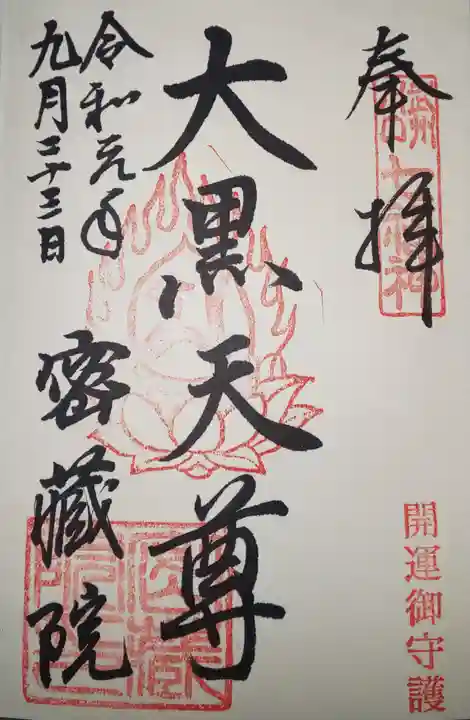 奉拝
七福神
開運御守護
大黒天尊
令和元年
九月二十三日
密藏院